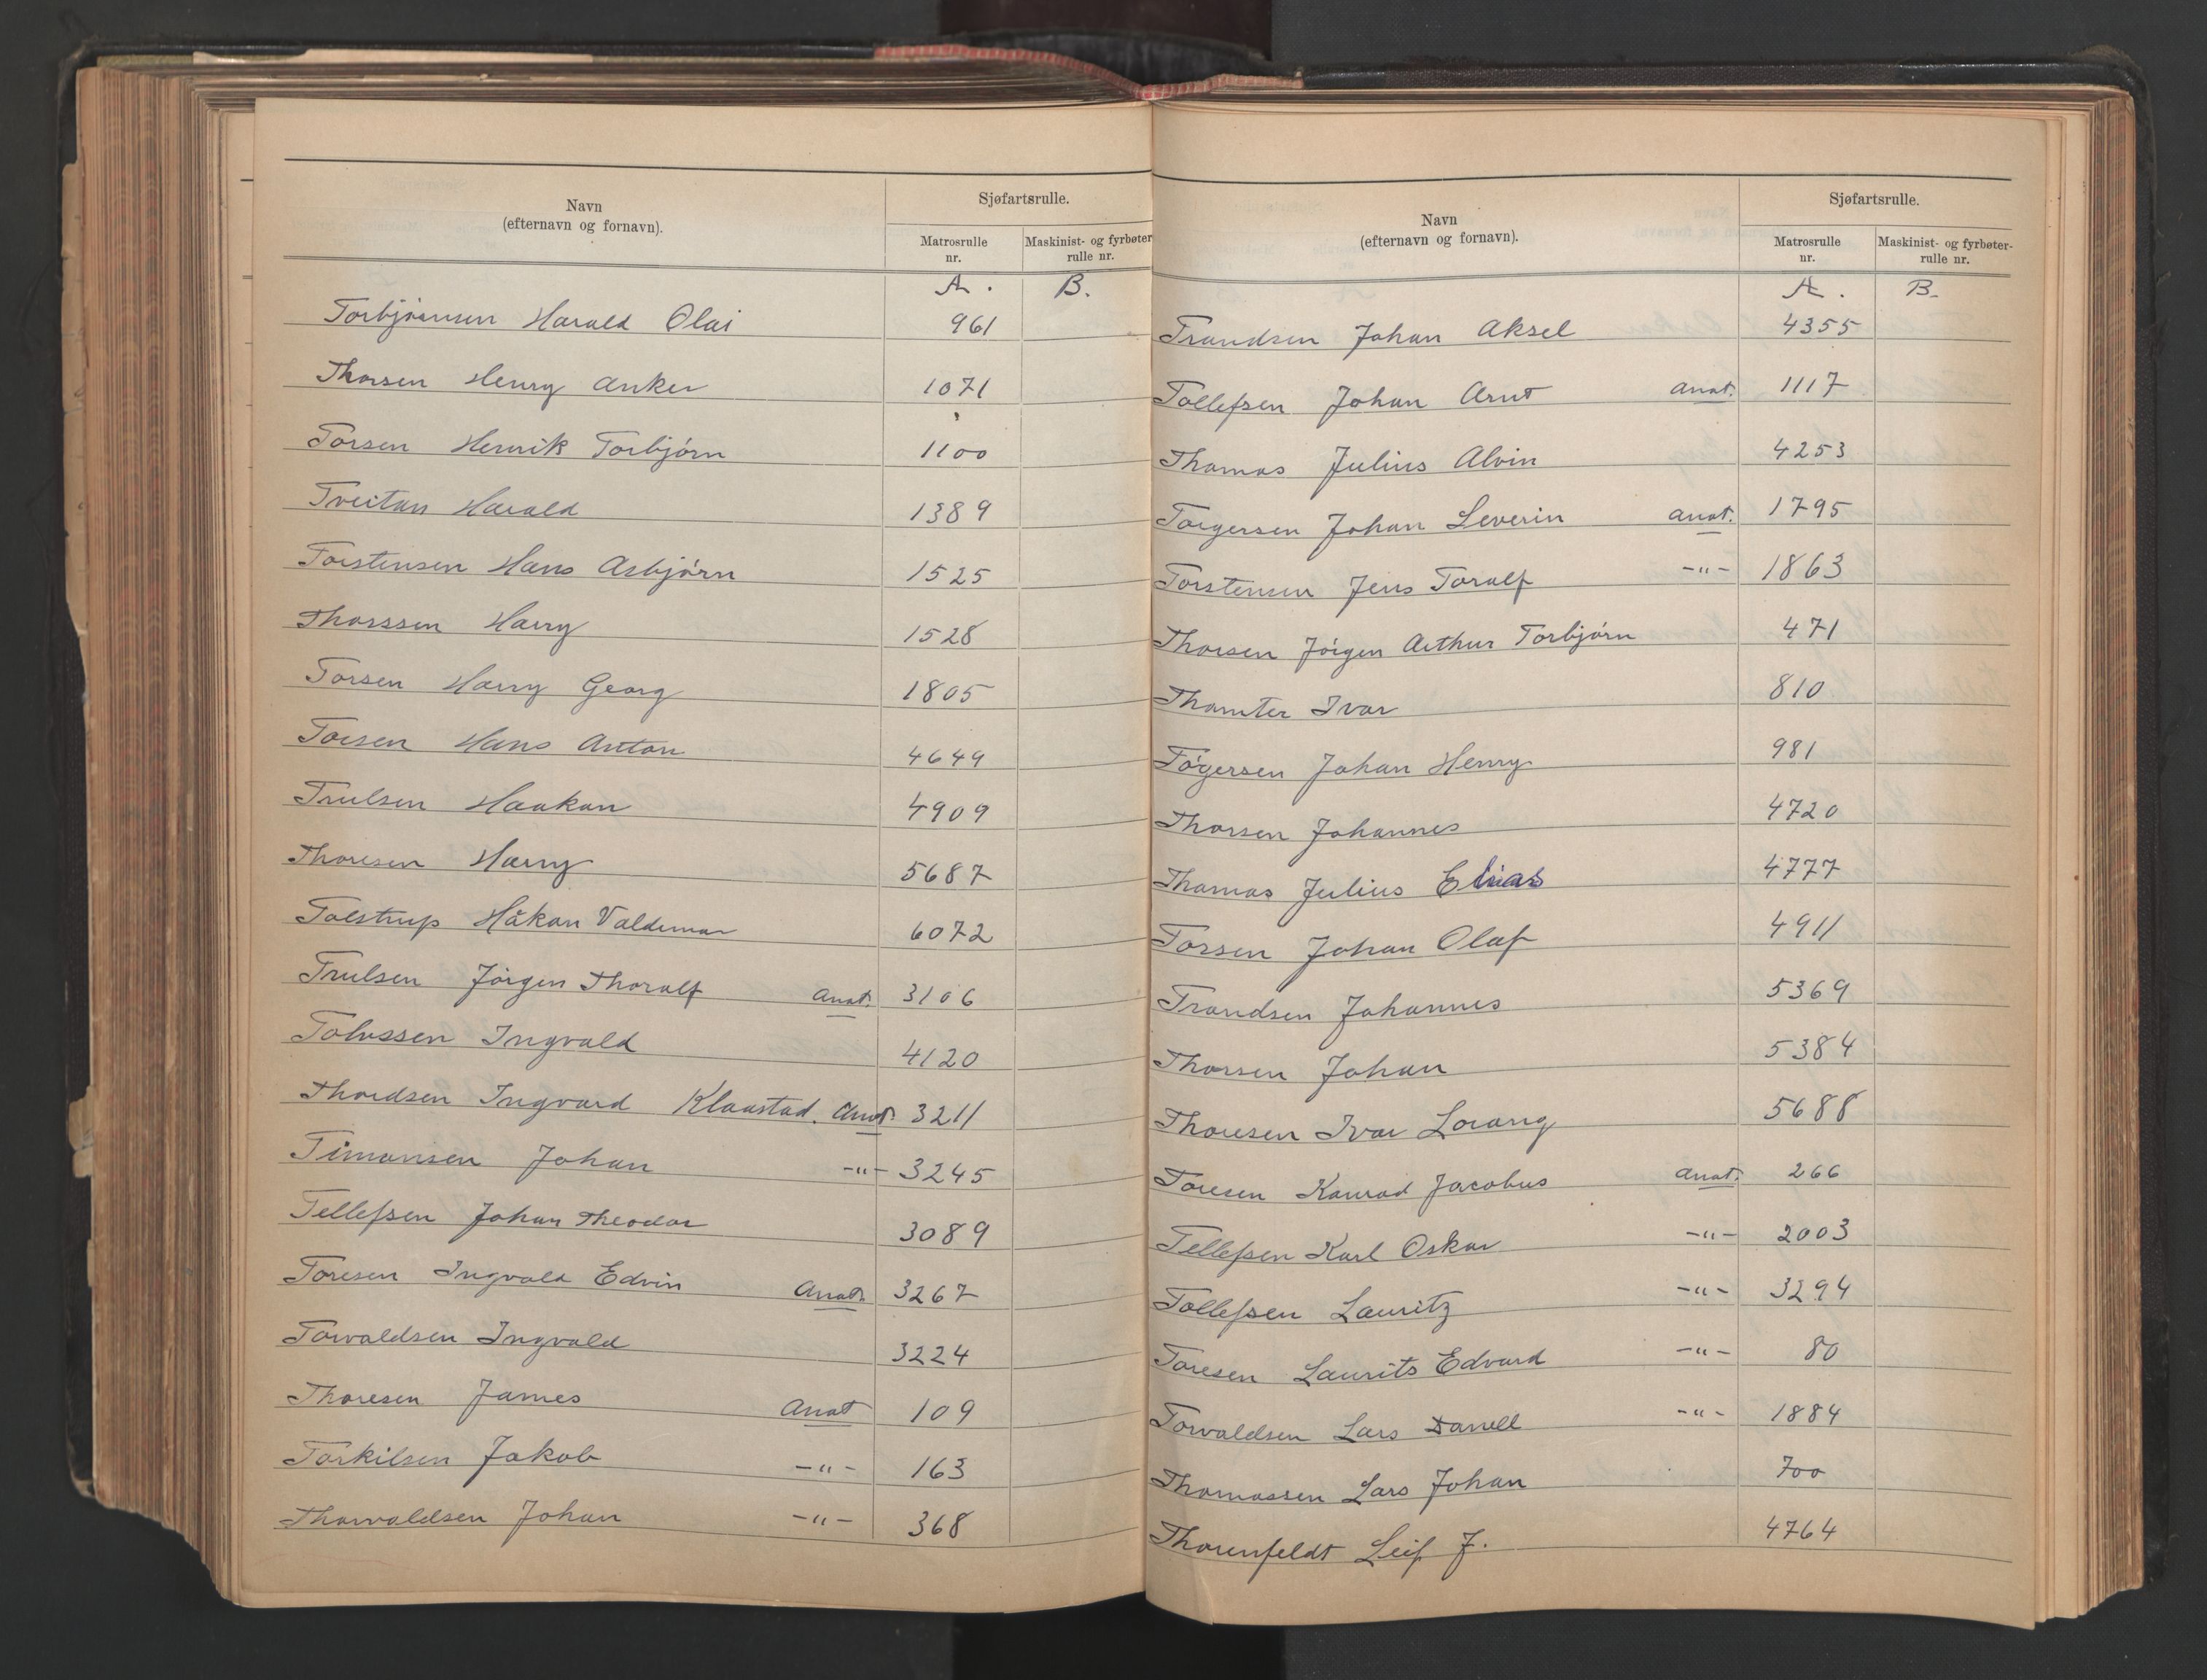 Navn
(efternavn og fornavn).
Sjøfartsrulle.
Matrosrulle nr.
Maskinist- og fyrbøter rulle nr.
A. B.
Torbjørnsen Harald Olai 961
Thorsen Henry Anker 1071
Torsen Henrik Torbjørn 1100
Tveitan Harald 1389
Torstensen Hans Asbjørn 1525
Thorssen Harry 1528
Torsen Harry Georg 1805
Torsen Hans Anton 4649
Trulsen Haakon 4909
Thoresen Harry 5687
Tolstrup Håkon Valdemar 6072
Trulsen Jørgen Thoralf Anot. 3106
Tolvssen Ingvald 4120
Thordsen Ingvard Klaastad. Anot. 3211
Timansen Johan -"- 3245
Tellefsen Johan Theodor 3089
Toresen Ingvald Edvin Anot. 3267
Torvaldsen Ingvald 3224
Thoresen James Anot 109
Torkilsen Jakob -"- 163
Thorvaldsen Johan -"- 368
Navn
(efternavn og fornavn).
Sjøfartsrulle.
Matrosrulle nr.
Maskinist- og fyrbøter-rulle nr.
A. B.
Trandsen Johan Aksel 4355
Tollefsen Johan Arnt Anot. 1117
Thomas Julius Alvin 4253
Torgersen Johan Severin Anot. 1795
Torstensen Jens Toralf -"- 1863
Thorsen Jørgen Arthur Torbjørn 471
Thomter Ivar 810
Tøgersen Johan Henry 981
Thorsen Johannes 4720
Thomas Julius Elias 4777
Torsen Johan Olaf 4911
Trondsen Johannes 5369
Thorsen Johan 5384
Thoresen Ivar Lorang 5688
Toresen Konrad Jacobus Anot. 266
Tellefsen Karl Oskar -"- 2003
Tollefsen Lauritz -"- 3294
Toresen Laurits Edvard -"- 80
Torvaldsen Lars Daniell -"- 1884
Thomassen Lars Johan 700
Thorenfeldt Leif J. 4764